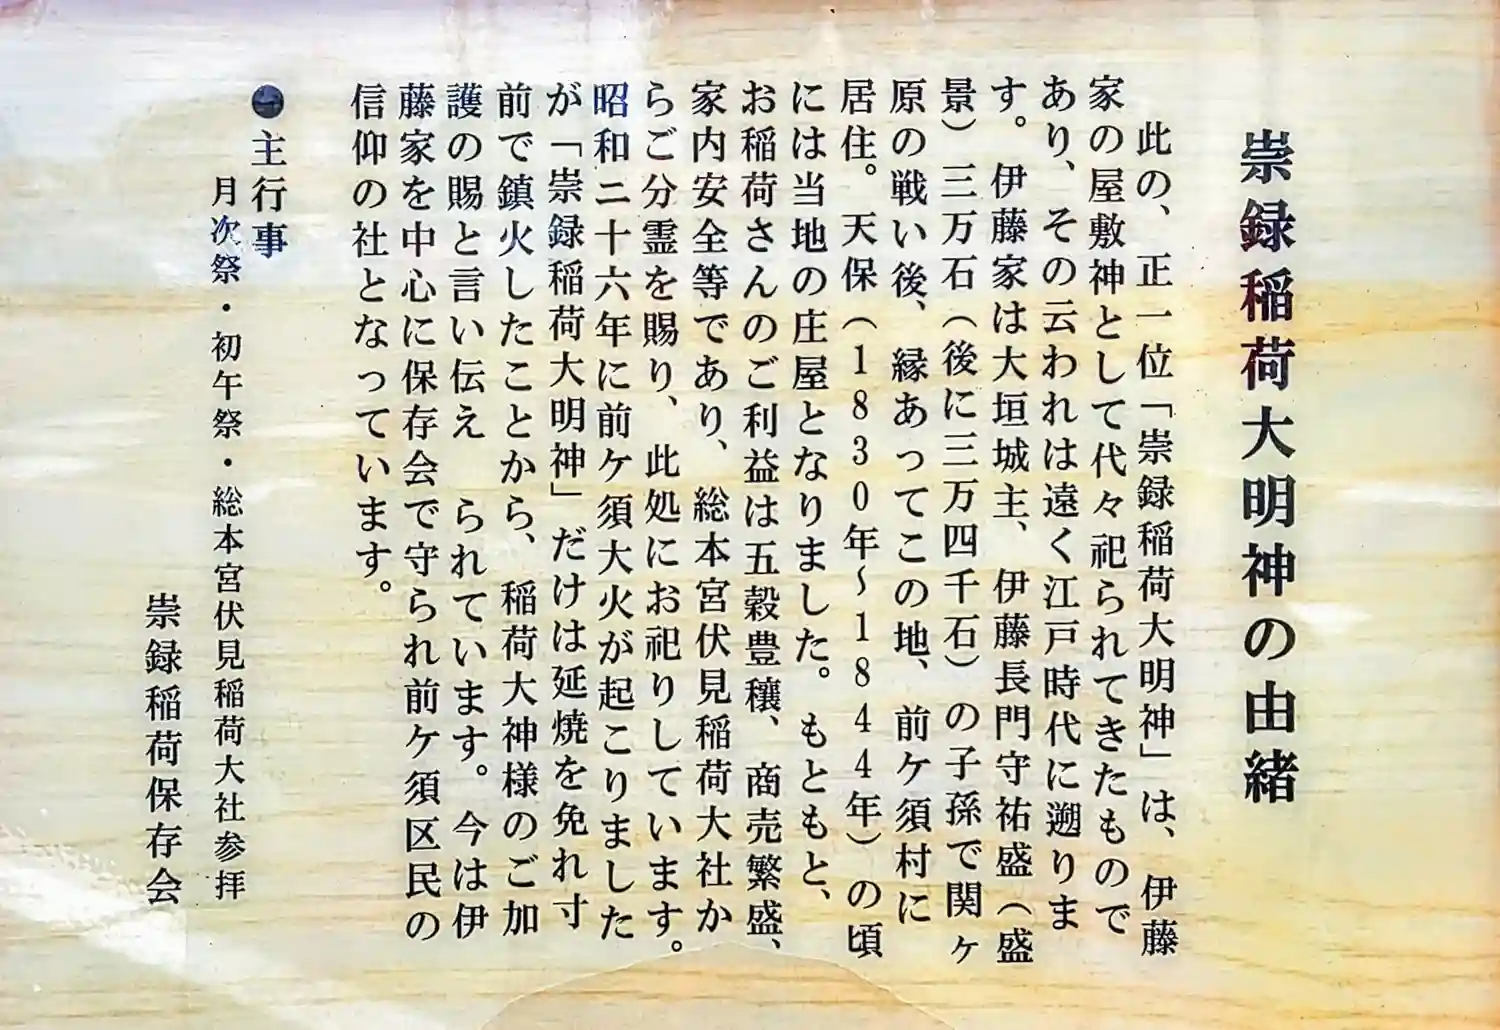 崇録稲荷大明神の由緒
此の、正一位「崇録稲荷大明神」は、伊藤
家の屋敷神として代々祀られてきたもので
あり、その云われは遠く江戸時代に遡りま
す。伊藤家は大垣城主、伊藤長門守祐盛（盛
景）三万石（後に三万四千石）の子孫で関ヶ
原の戦い後、縁あってこの地、前ケ須村に
居住。天保（1830年〜1844年）の頃
には当地の庄屋となりました。もともと、
お稲荷さんのご利益は五穀豊穣、商売繁盛、
家内安全等であり、総本宮伏見稲荷大社か
らご分霊を賜り、此処にお祀りしています。
昭和二十六年に前ケ須大火が起こりました
が「崇録稲荷大明神」だけは延焼を免れ寸
前で鎮火したことから、稲荷大神様のご加
護の賜と言い伝え　られています。今は伊
藤家を中心に保存会で守られ前ケ須区民の
信仰の社となっています。
●主行事
月次祭・初午祭・総本宮伏見稲荷大社参拝
崇録稲荷保存会